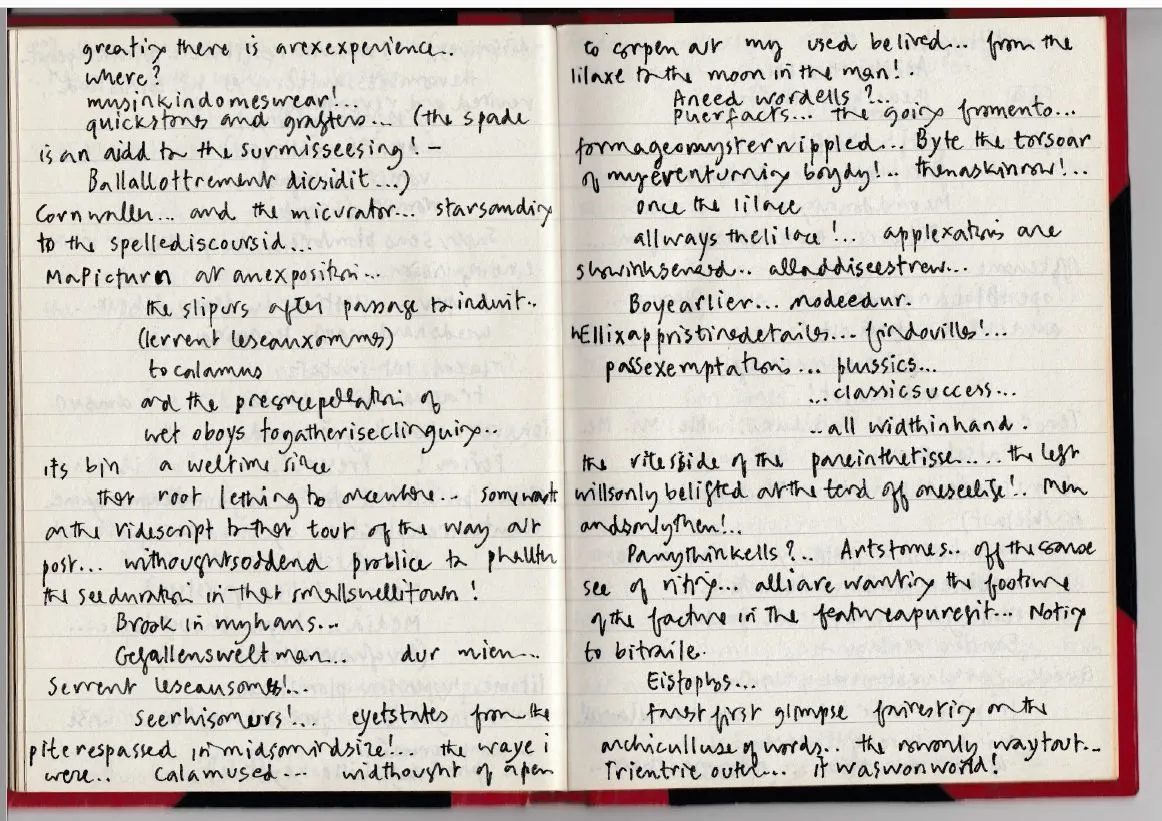 greatinx there is arexexperience..
where?
musinkindomeswear!...
quickstones and grafters... (the spade
is an aidd to the surmisseesing! –
Ballallottrement dicsidit...)
Cornwallen... and the micurator... starsandinx
to the spellediscoursid...
MaPicturn at anexposition...
the slipurs after passage to induit..
(lerrent leseauxommes)
to calamus
and the presncepellation of
wet oboys togatheriseclinguinx...
its bin a weltime since
that root lething to
on the videscript to that tout of the way art
post... withoughtsoddend problice to phallth
the seeduration in that smallswellitown!
Brook in myhans...
Gefallensweltman... dur mien...
Serrent leseausomes!...
seerhisomers!... eyetstates from the
pite respassed in midsomindsize!.. the waye i
were.. calamused... widthought of apen
to orpen art my used belived... from the
lilaxe to the moon in the man!.
Aneed wordells?...
Puerfacts... the goinx fromento...
formageomysternippled... Byte the torsoar
of myeventurninx boydy!.. thenaskinrow!..
once the lilace
allways thelilace!... applexations are
showinksenerd.. alladdiseestrew...
Boyearlier... nodeedur.
hEllixappristinedetailes... findovilles!...
passexemptations... plussics...
...classicsuccess...
..all widthinhand.
the ritesside of the pareinthetisse..... the left
willsonly belifted at the tend off oneselife!.. Then
andsonlythen!..
Panythinkells?... Artstomes.. off the
see of nitrix... alliare wantinx the footure
of the facture in the featureapuregit... Notinx
to bitraile.
Eistophs...
farst first glimpse fairestinx on the
archiculluse of words.. the rownonly waytout...
Trientric outel... it waswonworld!